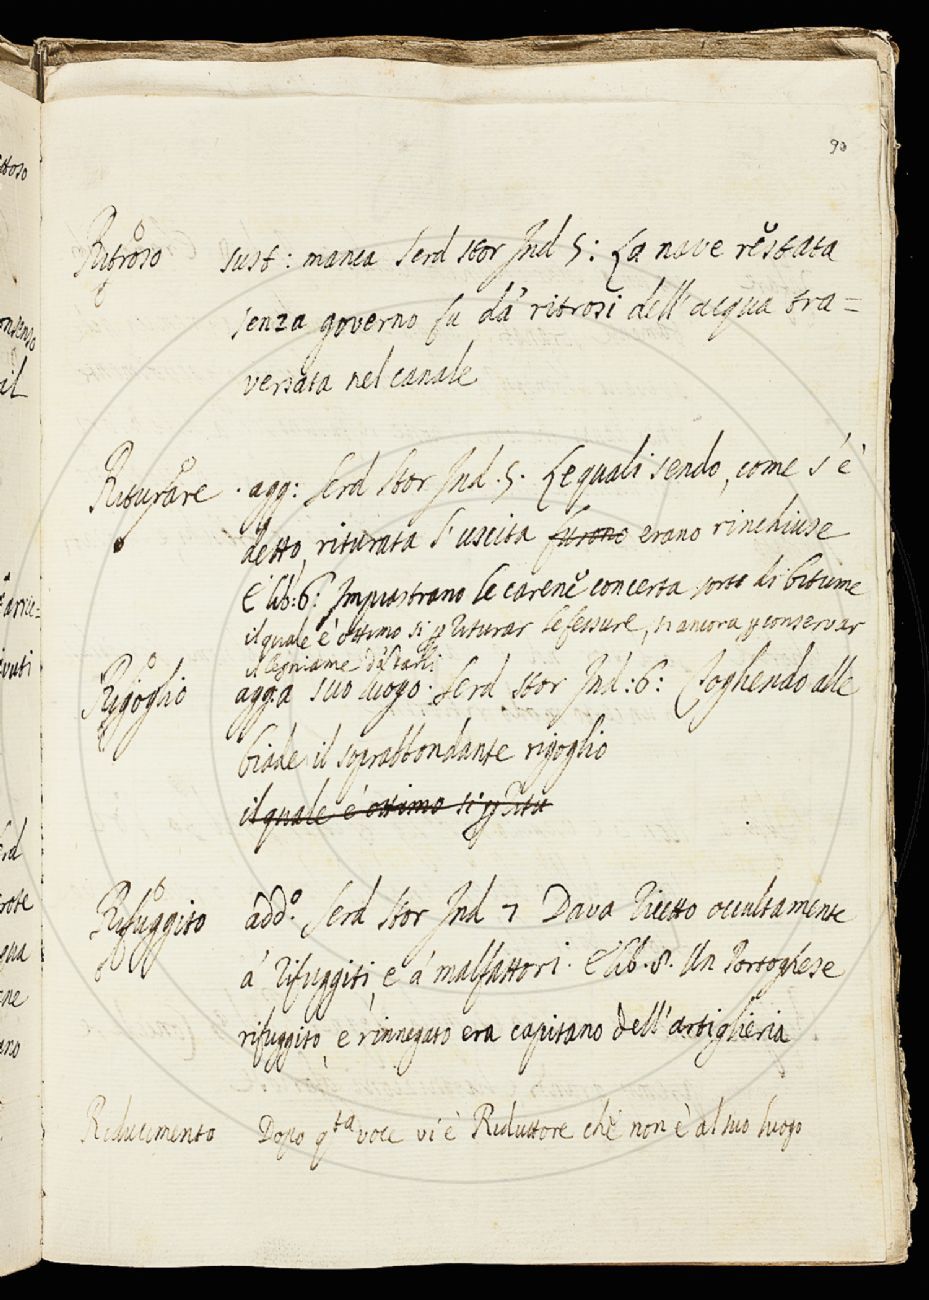 90
Ritroso sust: manca Serd stor Ind 5: La nave restata
senza governo fu da' ritrosi dell'acqua tra=
versata nel canale
Riturare · agg: Serd stor Ind. 5. Le quali sendo, come s'è
detto, riturata l'uscita furono erano rinchiuse
E lib: 6: Impiastrano le carene con certa sorta di bitume
il quale è ottimo sì p riturar le fessure, sì ancora p conservar
il legniame da' tarli
Rigoglio agg: a suo luogo. Serd stor Ind: 6: Togliendo alle
biade il soprabbondante rigoglio
il quale è ottimo sì p ritu
Rifuggito add.o Serd stor Ind 7 Dava ricetto occultamente
á rifuggiti, e á malfattori. E lib. 8. Un Portoghese
rifuggito, e rinnegato era capitano dell'artiglieria
Riducimento Dopo q.ta voce vi è Riduttore che non è al suo luogo